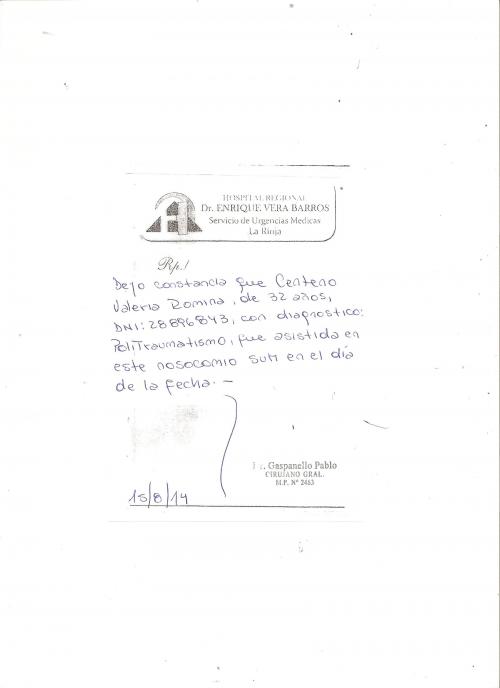 HOSPITAL REGIONAL
Dr. ENRIQUE VERA BARROS
Servicio de Urgencias Medicas
La Rioja
Rp./
Dejo constancia que Centeno
Valeria Romina, de 32 años,
DNI: 28896843, con diagnostico:
PoliTraumatismo, fue asistida en
este nosocomio SUM en el día
de la fecha. —
Gaspanello Pablo
CIRUJANO GRAL.
M.P. Nº 2463
15/8/14